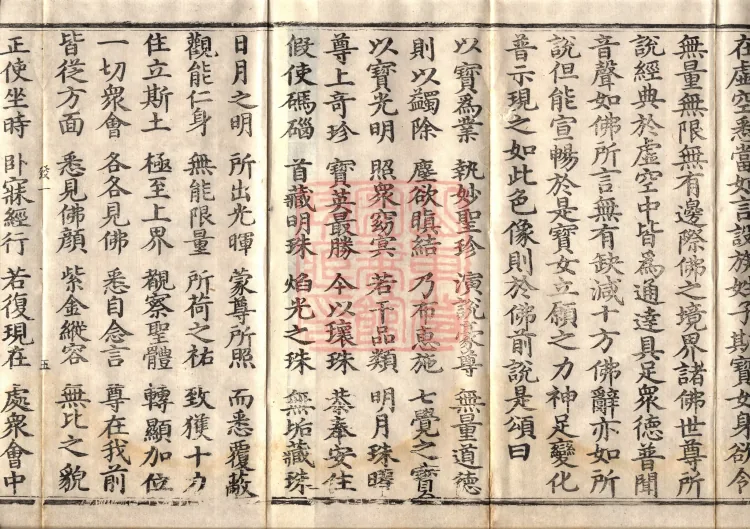 在虛空悉當如言設族姓子斯寶女身欲令
無量無限無有邊際佛之境界諸佛世尊所
說經典於虛空中皆為通達具足衆德普聞
音聲如佛所言無有缺減十方佛辭亦如所
說但能宣暢於是寶女立願之力神足變化
普示現之如此色像則於佛前說是頌曰
以寶為業 執妙聖珍 演說蒙尊 無量道德
則以蠲除 塵欲瞋結 乃布惠施 七覺之寶
以寶光明 照衆窈冥 若干品類 明月珠曜
尊上奇珍 寶英最勝 今以瓌珠 恭奉安住
假使碼碯 首藏明珠 焰光之珠 無垢藏珠
日月之明 所出光暉 蒙尊所照 而悉覆蔽
觀能仁身 無能限量 所荷之祐 致獲十力
住立斯土 極至上界 觀察聖體 轉顯加位
一切衆會 各各見佛 悉自念言 尊在我前
皆從方面 悉見佛顏 紫金縱容 無比之貌
正使坐時 卧寐經行 若復現在 處衆會中